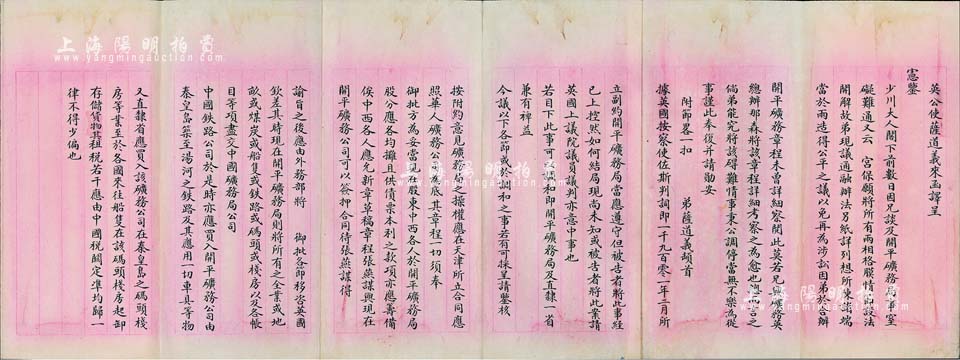 英公使薩道義來函譯呈
憲鑒
少川大人閣下前數日因兄談及開平礦務局事室
礙難通又云 宮保願將所有兩相格膜情事設法
開解故弟現議通融辦法另紙詳列想所東諸端
當於兩造得公平之議以免再為涉訟因弟於合辦
開平礦務章程未曾詳細察閱此莫若兄與礦務英
總辦那森將該章程詳細考察之為愈也總而言之
倘弟能究將該礙難情事秉公調停當無不樂為從
事謹此奉復并請勛安
附節畧一扣 弟薩道義頓首
據英國按察使佐斯判詞即一千九百零一年二月所
立副約開平礦務局當應遵守但被告者將此事經
已上控然如何結局現尚未知或被告者將此案請
英國上議院議員議判亦意中事也
若目下此事可調和即開平礦務局及直隸一省
兼有裨益
今議以下各節或於調和之事若有可採呈請鑒核
按附約意見礦務局之操權應在天津所立合同應
照華人礦務公司為底其章程一切須奉
御批方為妥當現在股東中西各人於開平礦務局
股分應各均攤且供債票本利之款項亦應籌備
俟中西各人應允新章草稿章程張燕謀與現在
開平礦務公司可以簽押合同待張燕謀得
諭旨之後應由外務部將 御批各節移咨英國
欽差其時現在開平礦務局則將所有之全業或地
畝或煤炭或船隻或鐵路或碼頭或棧房以及各帳
目等項盡交中國礦務局公司
中國鐵路公司於是時亦應買入開平礦務公司由
秦皇島築至湯河之鐵路及其應用一切車具等物
又直隸省應買入該礦務公司在秦皇島之碼頭棧
房等業至於各國來往船隻在該碼頭棧房起卸
存儲貨物其租稅若干應由中國稅關定準均歸一
律不得少偏也
上海陽明拍賣
www.yangmingauction.com
上海陽明拍賣
www.yangmingauction.com
上海陽明拍賣
www.yangmingauction.com